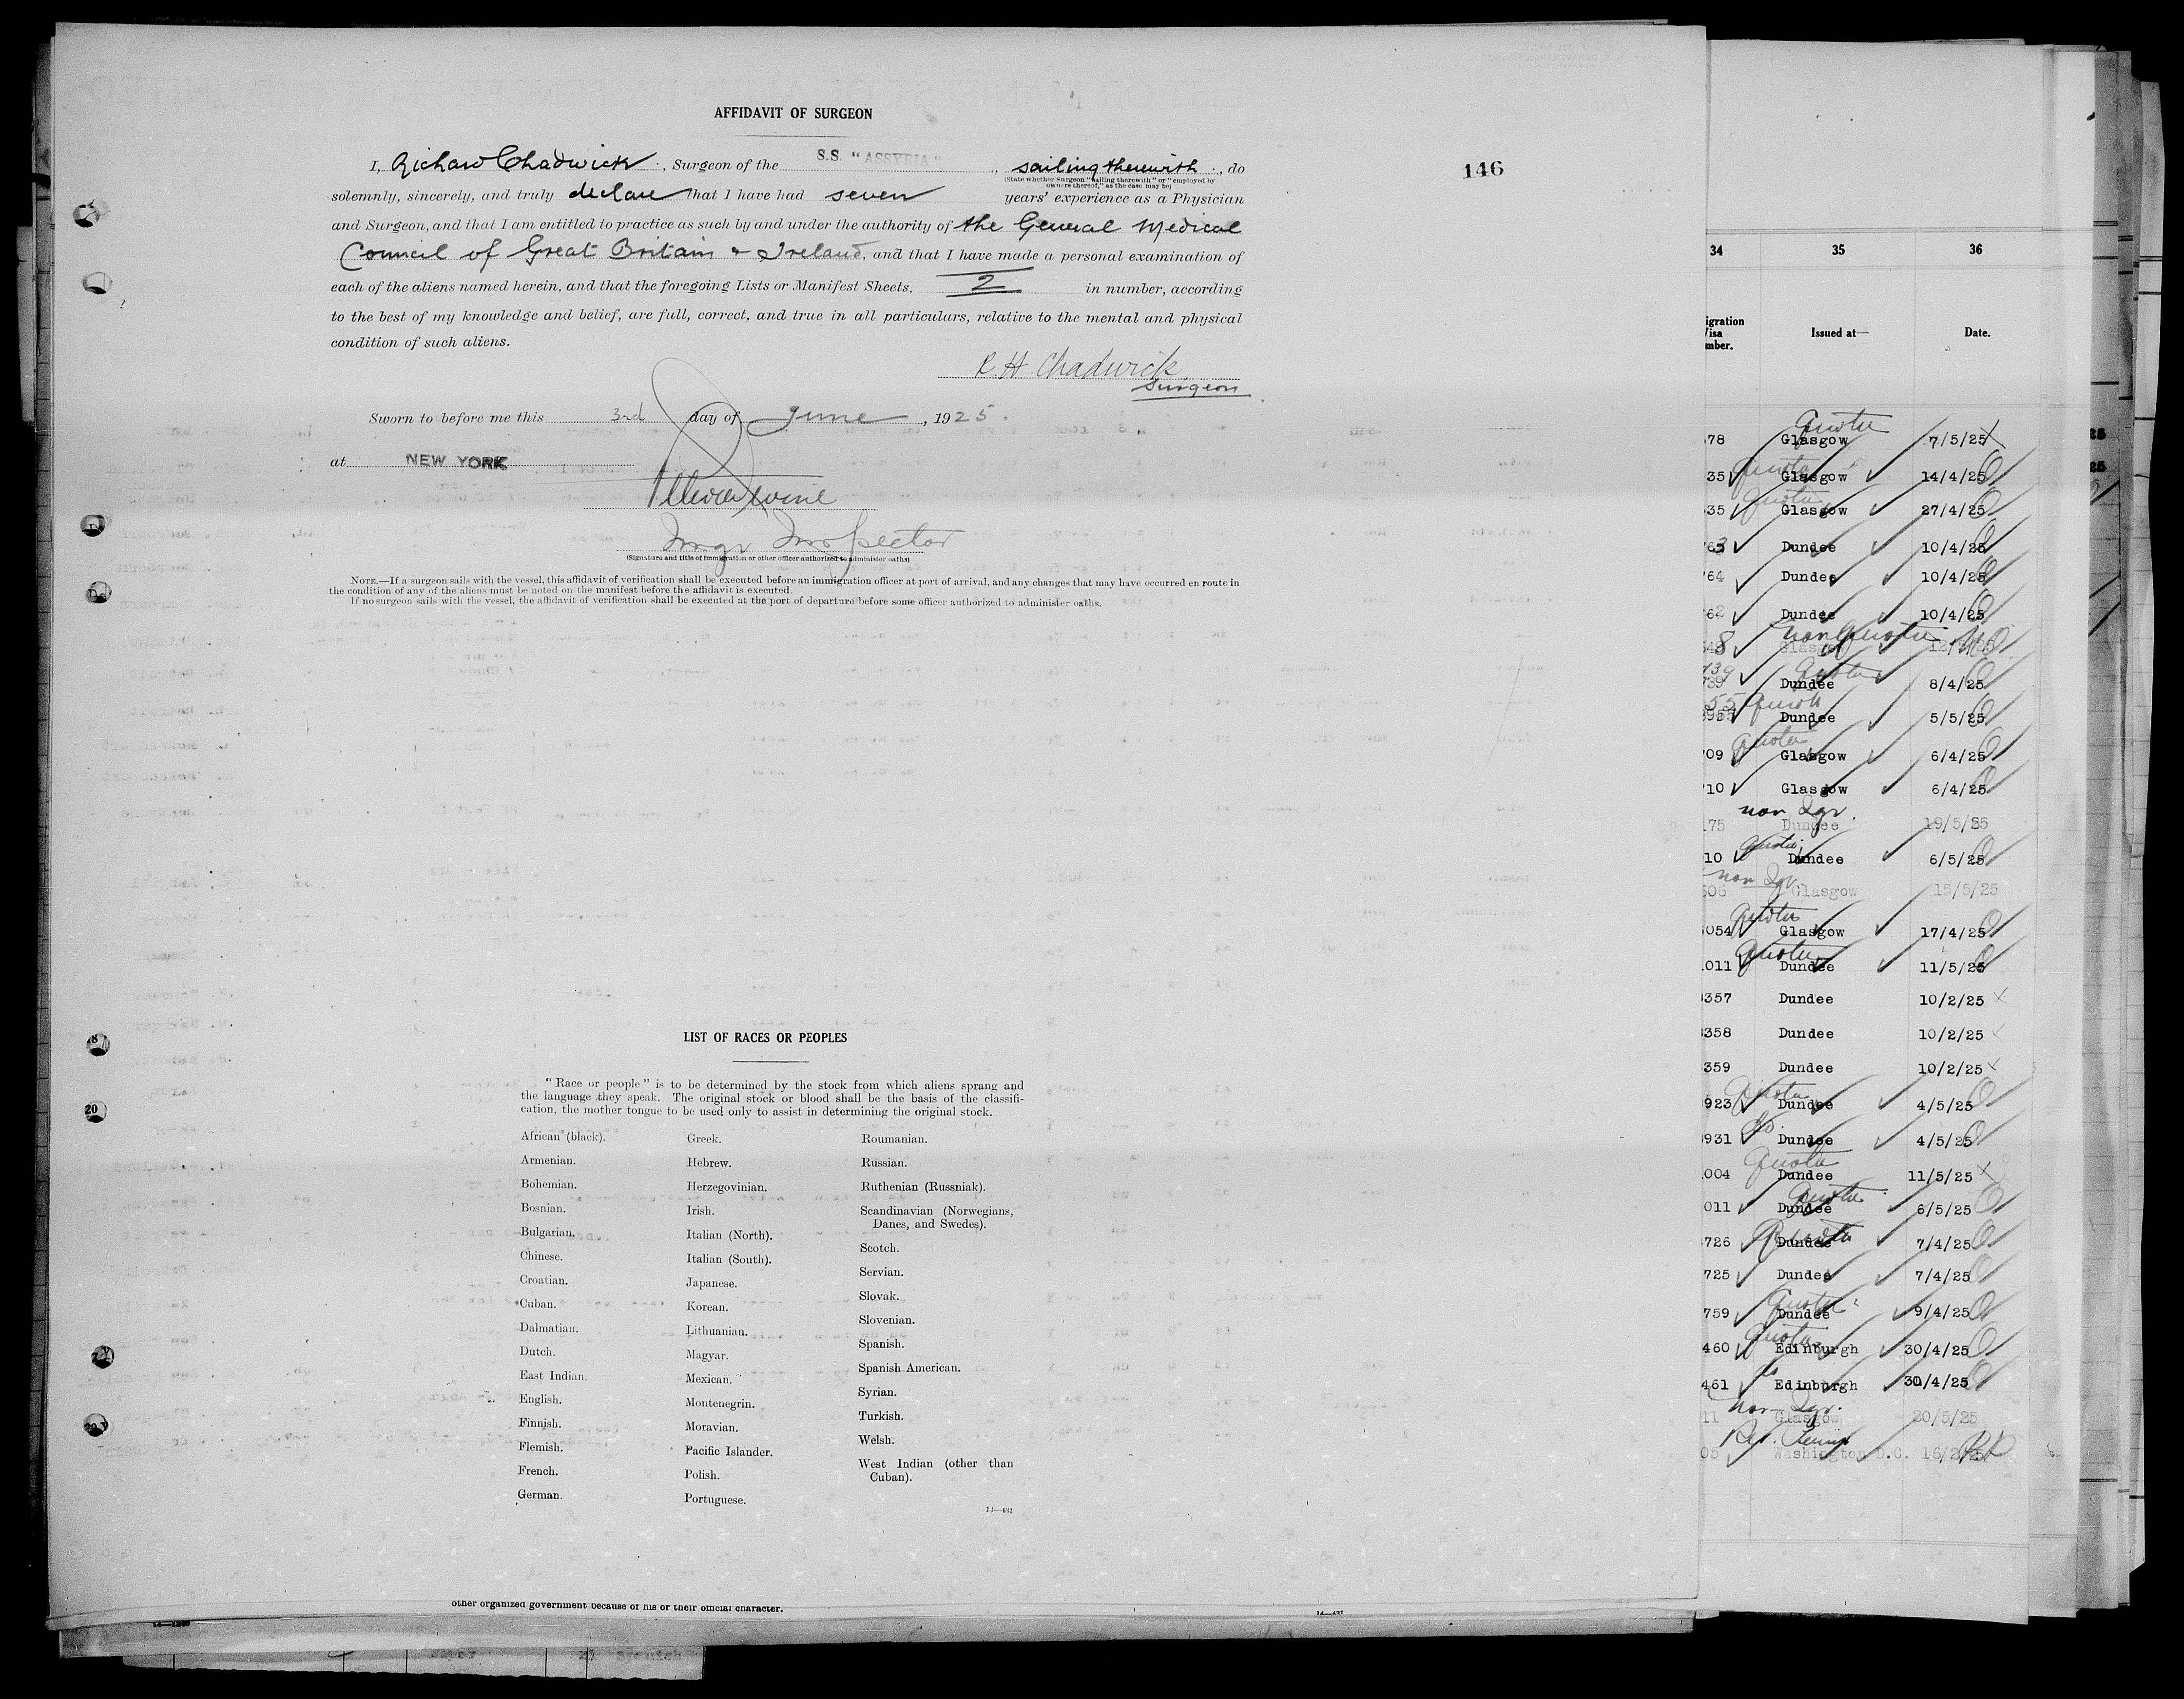 AFFIDAVIT OF SURGEON
I, Richard Chadwick, Surgeon of the S.S. "ASSYRIA", sailing therewith, do
(State whether Surgeon "sailing therewith" or "employed by owners thereof," as the case may be)
solemnly, sincerely, and truly declare that I have had seven years' experience as a Physician
and Surgeon, and that I am entitled to practice as such by and under the authority of the General Medical
Council of Great Britain & Ireland, and that I have made a personal examination of
each of the aliens named herein, and that the foregoing Lists or Manifest Sheets, 2 in number, according
to the best of my knowledge and belief, are full, correct, and true in all particulars, relative to the mental and physical
condition of such aliens.
R. H. Chadwick
Surgeon
Sworn to before me this 3rd day of June, 1925.
at NEW YORK
Imgr Inspector
(Signature and title of immigration or other officer authorized to administer oaths)
NOTE.—If a surgeon sails with the vessel, this affidavit of verification shall be executed before an immigration officer at port of arrival, and any changes that may have occurred en route in
the condition of any of the aliens must be noted on the manifest before the affidavit is executed.
If no surgeon sails with the vessel, the affidavit of verification shall be executed at the port of departure before some officer authorized to administer oaths.
146
LIST OF RACES OR PEOPLES
"Race or people" is to be determined by the stock from which aliens sprang and
the language they speak. The original stock or blood shall be the basis of the classifi-
cation, the mother tongue to be used only to assist in determining the original stock.
African (black).
Armenian.
Bohemian.
Bosnian.
Bulgarian.
Chinese.
Croatian.
Cuban.
Dalmatian.
Dutch.
East Indian.
English.
Finnish.
Flemish.
French.
German.
Greek.
Hebrew.
Herzegovinian.
Irish.
Italian (North).
Italian (South).
Japanese.
Korean.
Lithuanian.
Magyar.
Mexican.
Montenegrin.
Moravian.
Pacific Islander.
Polish.
Portuguese.
Roumanian.
Russian.
Ruthenian (Russniak).
Scandinavian (Norwegians,
Danes, and Swedes).
Scotch.
Servian.
Slovak.
Slovenian.
Spanish.
Spanish American.
Syrian.
Turkish.
Welsh.
West Indian (other than
Cuban).
14—431
other organized government because of his or their official character.
14—431
34 35 36
igration
Visa
mber.
Issued at—
Date.
Quota
78 Glasgow 7/5/25
Quota
35 Glasgow 14/4/25
Quota
35 Glasgow 27/4/25
763 Dundee 10/4/25
764 Dundee 10/4/25
762 Dundee 10/4/25
non Quota
548 Glasgow
739 Quota
739 Dundee 8/4/25
55 Quota
Dundee 5/5/25
Quota
709 Glasgow 6/4/25
710 Glasgow 6/4/25
non Qgr.
175 Dundee 19/5/25
Quota
10 Dundee 6/5/25
non Qgr.
506 Glasgow 15/5/25
Quota
054 Glasgow 17/4/25
Quota
011 Dundee 11/5/25
3357 Dundee 10/2/25
358 Dundee 10/2/25
359 Dundee 10/2/25
Quota
923 Dundee 4/5/25
do.
931 Dundee 4/5/25
Quota
004 Dundee 11/5/25
Quota
011 Dundee 6/5/25
Quota
726 Dundee 7/4/25
725 Dundee 7/4/25
Quota
759 Dundee 9/4/25
Quota
460 Edinburgh 30/4/25
do
461 Edinburgh 30/4/25
11 Glasgow 20/5/25
05 Washington D.C.